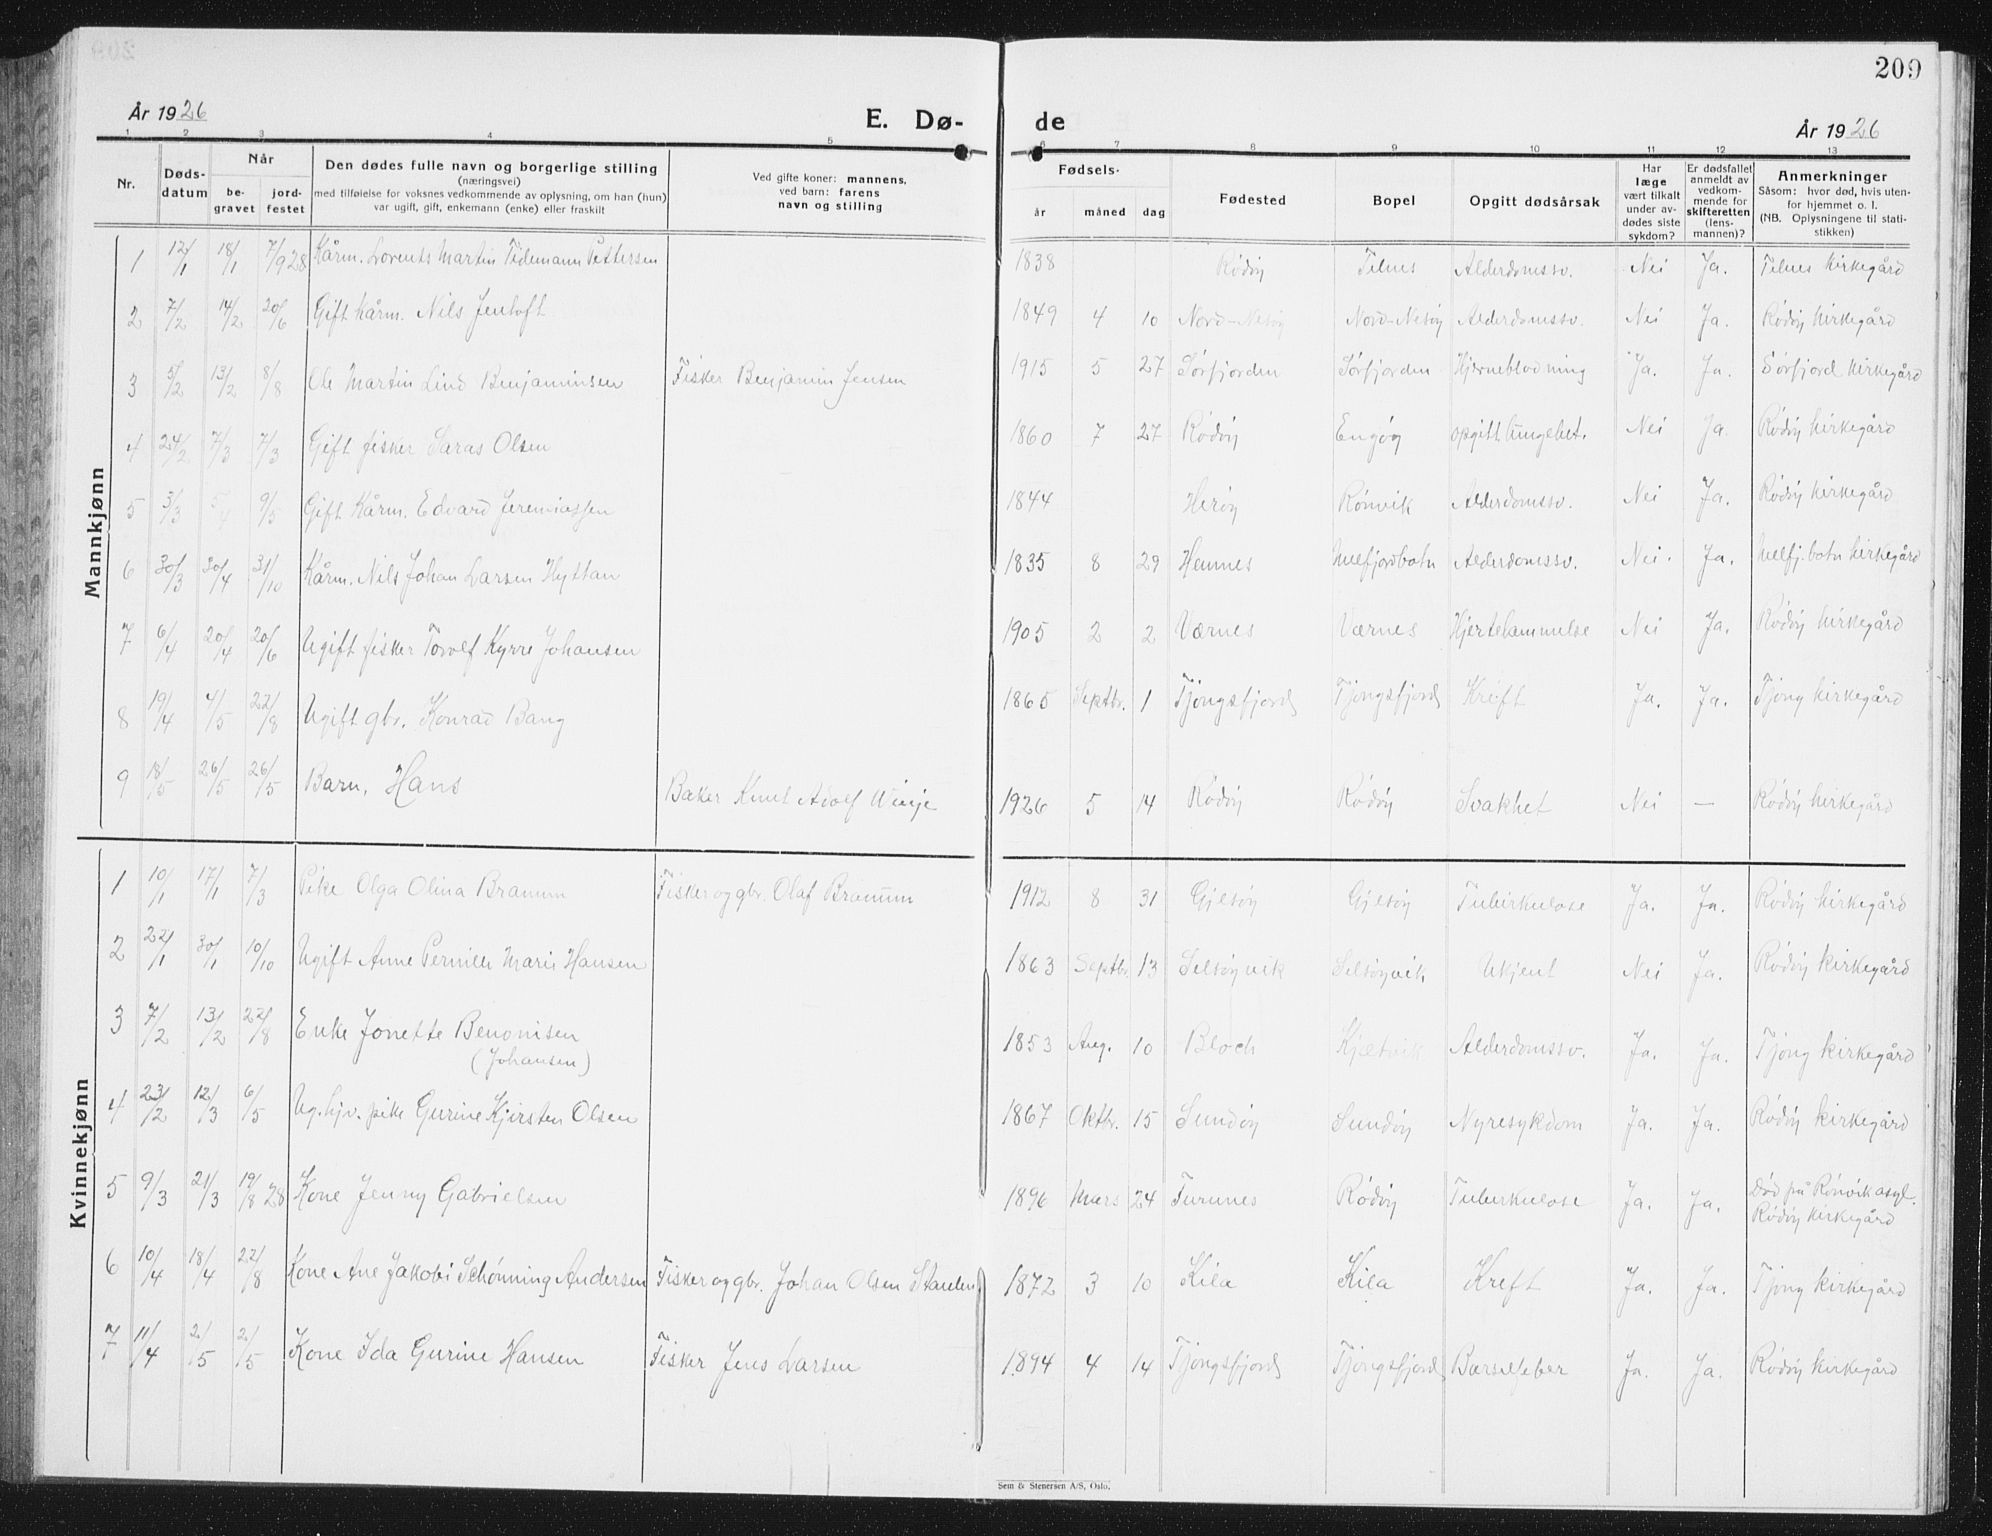 209
År 1926 E. Dø- de År 1926
1 2 3 4 5 6 7 8 9 10 11 12 13
Nr. Døds-datum Når be-gravet jord-festet Den dødes fulle navn og borgerlige stilling (næringsvei) med tilføielse for voksnes vedkommende av oplysning, om han (hun) var ugift, gift, enkemann (enke) eller fraskilt Ved gifte koner: mannens, ved barn: farens navn og stilling Fødsels- år måned dag Fødested Bopel Opgitt dødsårsak Har læge vært tilkalt under av-dødes siste sykdom? Er dødsfallet anmeldt av vedkom-mende for skifteretten (lens-mannen)? Anmerkninger Såsom: hvor død, hvis uten-for hjemmet o. l. (NB. Oplysningene til stati-stikken)
Mannkjønn
1 12/1 18/1 7/9 28 Kårm. Lorents Martin Tidemann Pettersen 1838 Rødøy Telnes Alderdomssv. Nei Ja. Telnes kirkegård
2 7/2 14/2 20/6 Gift kårm. Nils Jentoft 1849 4 10 Nord-Nesøy Nord-Nesøy Alderdomssv. Nei Ja. Rødøy kirkegård
3 5/2 13/2 8/8 Ole Martin Lind Benjaminsen Fisker Benjamin Jensen 1915 5 27 Sørfjorden Sørfjorden Hjerneblødning Ja. Ja. Sørfjord kirkegård
4 24/2 7/3 7/3 Gift fisker Saras Olsen 1860 7 27 Rødøy Engøy opgitt lungebet. Nei Ja Rødøy kirkegård
5 3/3 5/4 9/5 Gift Kårm. Edvard Jeremiassen 1844 Herøy Rønvik Alderdomssv. Nei Ja. Rødøy kirkegård
6 30/3 20/4 31/10 Kårm. Nils Johan Larsen Hyttan 1835 8 29 Hemnes Melfjordbotn Alderdomssv. Nei. Ja. Melfj.botn kirkegård
7 6/4 20/4 20/6 Ugift fisker Torolf Kyrre Johansen 1905 2 2 Værnes Værnes Hjertelammelse Nei Ja. Rødøy kirkegård
8 19/4 4/5 22/8 Ugift gbr. Konrad Bang 1865 Septbr. 1 Tjongsfjord Tjongsfjord Kreft Ja. Ja. Tjong kirkegård
9 18/5 26/5 26/5 Barn, Hans Baker Knut Adolf Winje 1926 5 14 Rødøy Rødøy Svakhet Nei — Rødøy kirkegård
Kvinnekjønn
1 10/1 17/1 7/3 Pike Olga Olina Bramm Fisker og gbr. Olaf 1912 8 31 Gjesøy Gjesøy Tuberkulose Ja. Ja. Rødøy kirkegård
2 22/1 30/1 10/10 Ugift Anne Pernille Marie Hansen 1863 Septbr. 13 Selsøyvik Selsøyvik Ukjent Nei Ja. Rødøy kirkegård
3 7/2 13/2 22/8 Enke Jonette Benonisen 1853 Aug. 10 Bloch Kjelvik Alderdomssv. Ja. Ja. Tjong kirkegård
(Johansen)
4 23/2 12/3 6/5 Ug. hjv. pike Gurine Kjirsten Olsen 1867 Oktbr. 15 Sundøy Sundøy Nyresykdom Ja. Ja. Rødøy kirkegård
5 9/3 21/3 19/8 28 Kone Jenny Gabrielsen 1896 Mars 24 Furunes Rødøy Tuberkulose Ja. Ja. Død på Rønvik asyl.
Rødøy kirkegård
6 10/4 18/4 22/8 Kone Ane Jakobi Schønning Andersen Fisker og gbr. Johan Olsen Standen 1872 3 10 Kila Kila Kreft Ja. Ja. Tjong kirkegård
7 11/4 2/5 2/5 Kone Ida Gurine Hansen Fisker Jens Larsen 1894 4 14 Tjongsfjord Tjongsfjord Barselfeber Ja. Ja. Rødøy kirkegård
Sem & Stenersen A/S, Oslo.